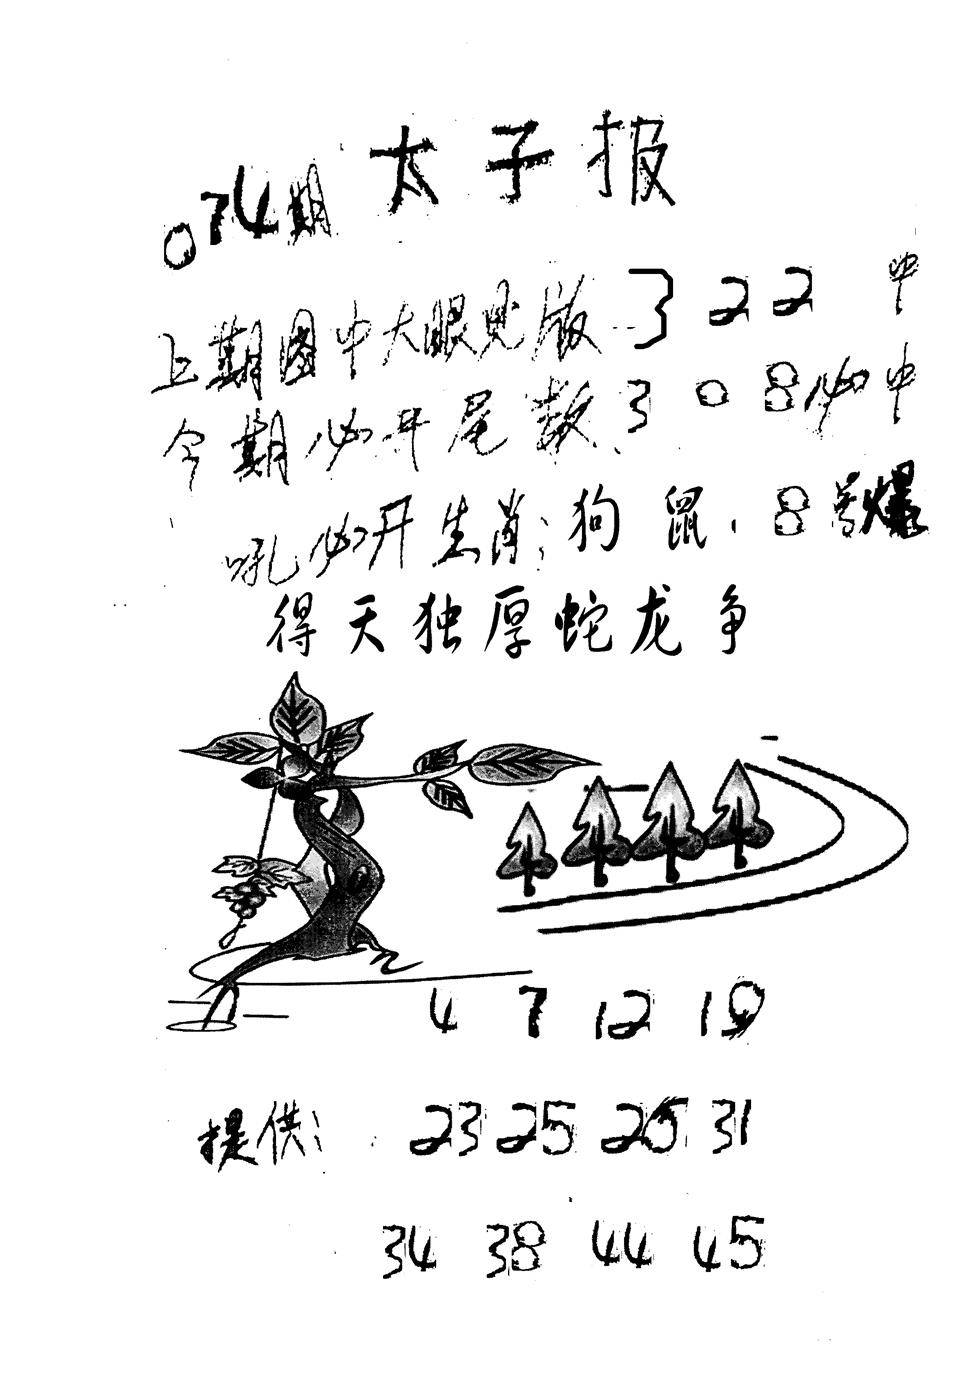 太子报
074期
上期图中大眼见版 3 2 2 中
今期必开尾数 3 0 8 必中
吼必开生肖:狗 鼠. 8号爆
得天独厚蛇龙争
4 4 4 4
4 7 12 19
提供: 23 25 25 31
34 38 44 45